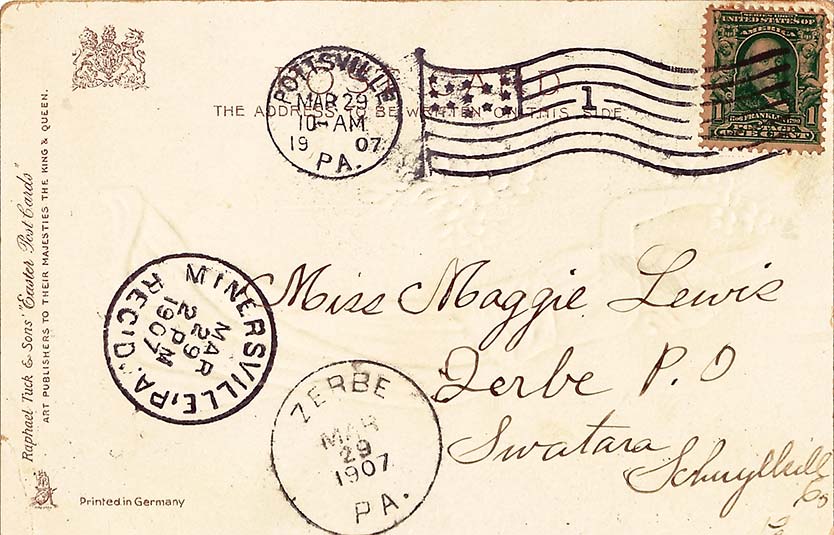 POST CARD
THE ADDRESS TO BE WRITTEN ON THIS SIDE
POTTSVILLE
MAR 29
10-AM
19 07
PA.
1
SERIES 1902
UNITED STATES OF
AMERICA
1 FRANKLIN 1
POSTAGE
ONE CENT
Raphael Tuck & Sons' "Easter Post Cards"
ART PUBLISHERS TO THEIR MAJESTIES THE KING & QUEEN.
MINERSVILLE, PA.
MAR
29
2 PM
1907
REC'D.
Miss Maggie Lewis
Zerbe P. O
Swatara
Schuylkill
Co
ZERBE
MAR
29
1907
PA.
Printed in Germany